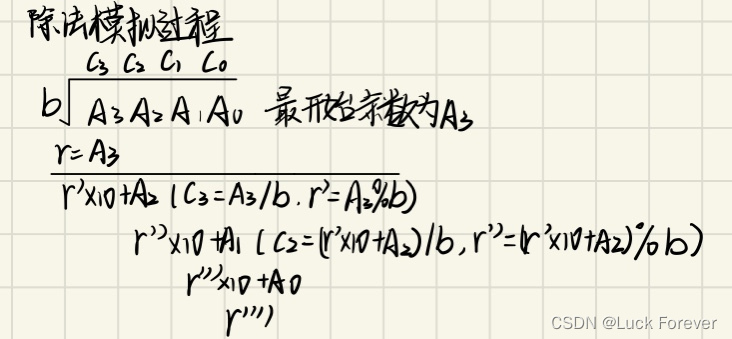 除法模拟过程
C3 C2 C1 C0
b A3 A2 A1 A0 最开始余数为A3
r=A3
r'×10+A2 (C3=A3/b, r'=A3%b)
r''×10+A1 (C2=(r'×10+A2)/b, r''=(r'×10+A2)%b)
r'''×10+A0
r''''
CSDN @Luck Forever